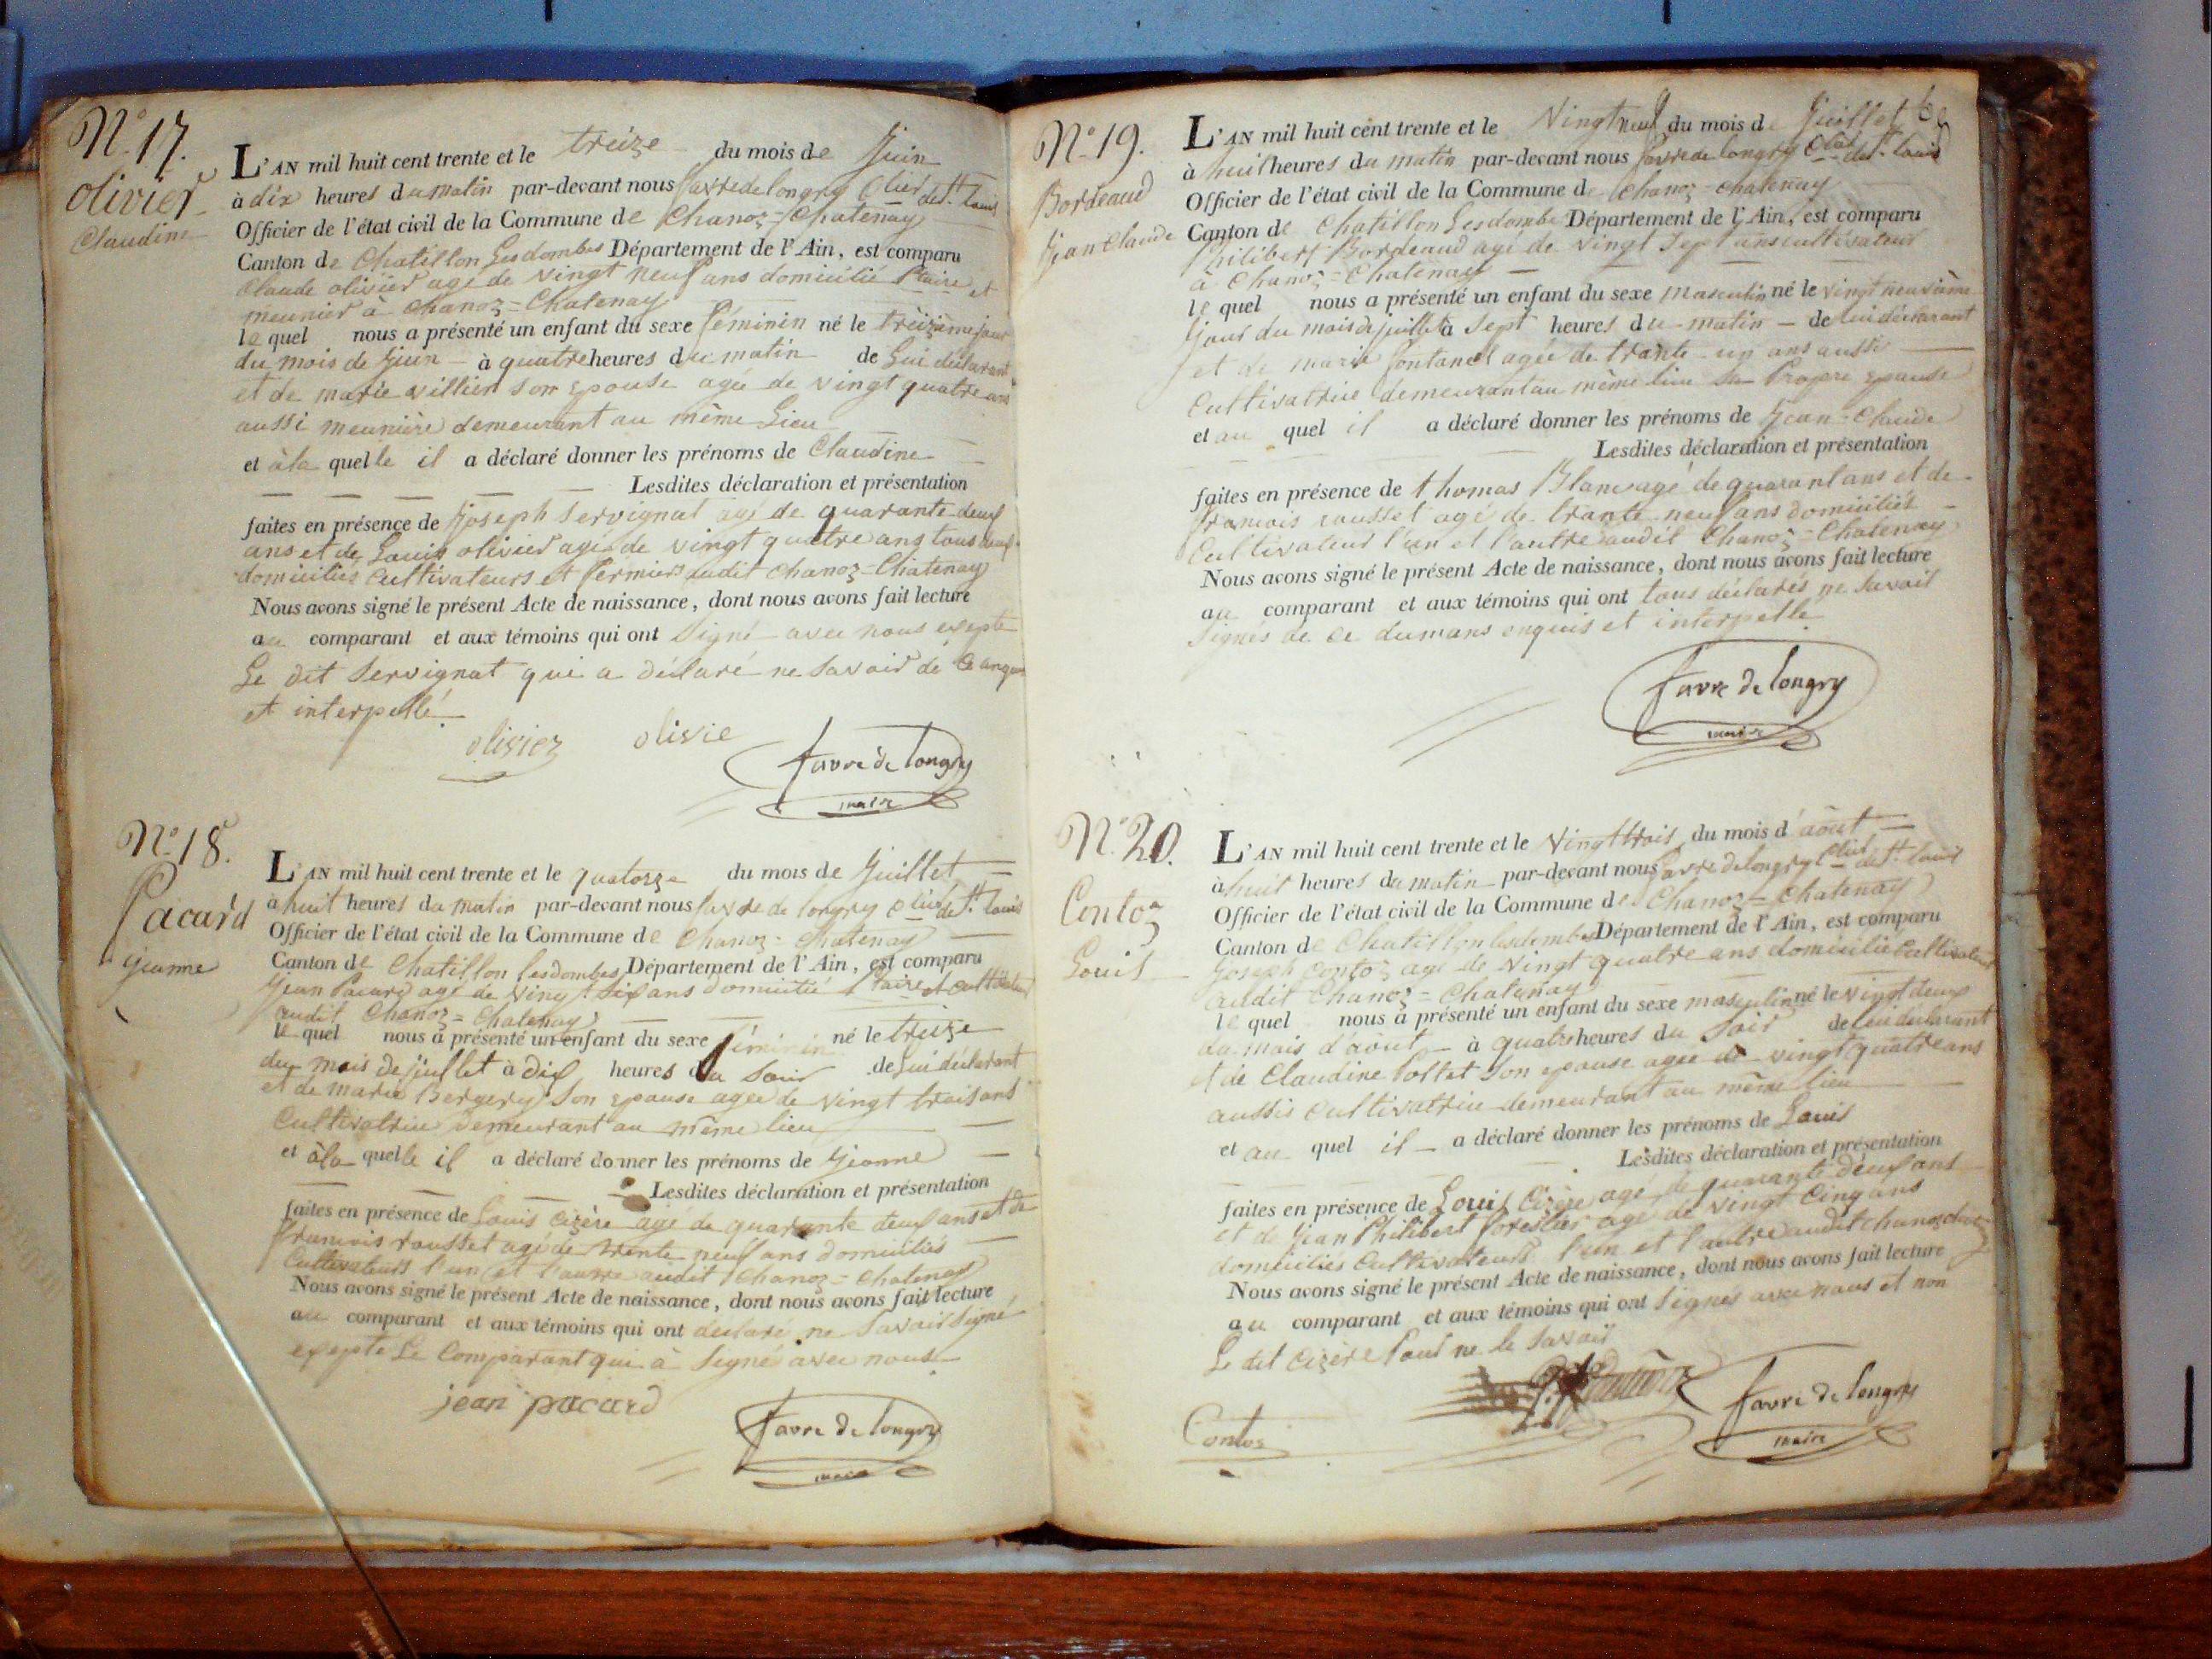 N.° 17.
olivier
Claudine
L'AN mil huit cent trente et le treize du mois de Juin
à dix heures du matin par-devant nous favre de longry Clier de St. louis
Officier de l'état civil de la Commune de Chanoz=Chatenay
Canton de Chatillon Lesdombes Département de l'Ain, est comparu
Claude olivier agé de vingt neuf ans domicilié et
meunier à Chanoz=Chatenay
le quel nous a présenté un enfant du sexe féminin né le treizième jour
du mois de Juin à quatre heures du matin de Lui déclarant
et de marie villier son epouse agée de vingt quatre ans
aussi meunière demeurant au même Lieu
et à la quelle il a déclaré donner les prénoms de Claudine
Lesdites déclaration et présentation
faites en présence de Joseph Servignat agé de quarante deux
ans et de Louis olivier agé de vingt quatre ans tous deux
domiciliés Cultivateurs et fermiers audit Chanoz=Chatenay
Nous avons signé le présent Acte de naissance, dont nous avons fait lecture
au comparant et aux témoins qui ont Signé avec nous exepte
Le dit Servignat qui a déclaré ne savoir de Ce anquis
et interpellé
olivier olivie
favre de longry
maire
N.° 18.
Pacard
Jeanne
L'AN mil huit cent trente et le quatorze du mois de Juillet
à huit heures du matin par-devant nous favre de longry Clier de St. louis
Officier de l'état civil de la Commune de Chanoz=Chatenay
Canton de Chatillon lesdombes Département de l'Ain, est comparu
Jean Pacard agé de vingt six ans domicilié et cultivateur
audit Chanoz=Chatenay
le quel nous a présenté un enfant du sexe féminin né le treize
du mois de juillet à dix heures du Soir de Lui déclarant
et de marie Bergery son epouse agée de vingt trois ans
Cultivatrice demeurant au même lieu
et à la quelle il a déclaré donner les prénoms de Jeanne
Lesdites déclaration et présentation
faites en présence de Louis Cizère agé de quarante deux ans et de
francois rousset agé de trente neuf ans domiciliés
Cultivateurs l'un et l'autre audit Chanoz=Chatenay
Nous avons signé le présent Acte de naissance, dont nous avons fait lecture
au comparant et aux témoins qui ont déclaré ne Savoir Signé
exepte Le Comparant qui à Signé avec nous
jean pacard
favre de longry
maire
N.° 19.
Bordeaud
Jean Claude
L'AN mil huit cent trente et le Vingt neuf du mois de Juillet
à huit heures du matin par-devant nous favre de longry Clier de St. louis
Officier de l'état civil de la Commune de Chanoz=Chatenay
Canton de Chatillon Lesdombes Département de l'Ain, est comparu
Philibert Bordeaud agé de vingt sept ans cultivateur
à Chanoz=Chatenay
le quel nous a présenté un enfant du sexe masculin né le vingt neuvième
jour du mois de juillet à sept heures du matin de lui déclarant
et de marie fontanel agée de trante un ans aussi
Cultivatrice demeurant au même lieu sa Propre epouse
et au quel il a déclaré donner les prénoms de Jean-Claude
Lesdites déclaration et présentation
faites en présence de thomas Blanc agé de quarant ans et de
francois rousset agé de trante neuf ans domiciliés
Cultivateur l'un et l'autre audit Chanoz=Chatenay
Nous avons signé le présent Acte de naissance, dont nous avons fait lecture
au comparant et aux témoins qui ont tous déclarés ne savoir
Signés de ce dumans enquis et interpelle
favre de longry
maire
N.° 20.
Contoz
Louis
L'AN mil huit cent trente et le Vingt trois du mois d'août
à huit heures du matin par-devant nous favre de longry Clier de St. louis
Officier de l'état civil de la Commune de Chanoz=Chatenay
Canton de Chatillon lesdombes Département de l'Ain, est comparu
Joseph Contoz agé de vingt quatre ans domicilié Cultivateur
audit Chanoz=Chatenay
le quel nous a présenté un enfant du sexe masculin né le vingt deux
du mois d'août à quatre heures du Soir de lui déclarant
et de Claudine Poltet son epouse agée de vingt quatre ans
aussi Cultivatrice demeurant au même lieu
et au quel il a déclaré donner les prénoms de Louis
Lesdites déclaration et présentation
faites en présence de Louis Cizère agé de quarante deux ans
et de Jean Philibert forestier agé de vingt Cinq ans
domiciliés Cultivateurs l'un et l'autre audit chanoz
Nous avons signé le présent Acte de naissance, dont nous avons fait lecture
au comparant et aux témoins qui ont Signés avec nous et non
Le dit Cizère Pour ne le savoir
Contos
favre de longry
maire